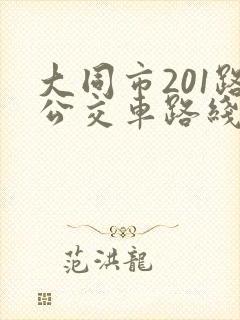 大同市201路
公交車路綫
范洪龍